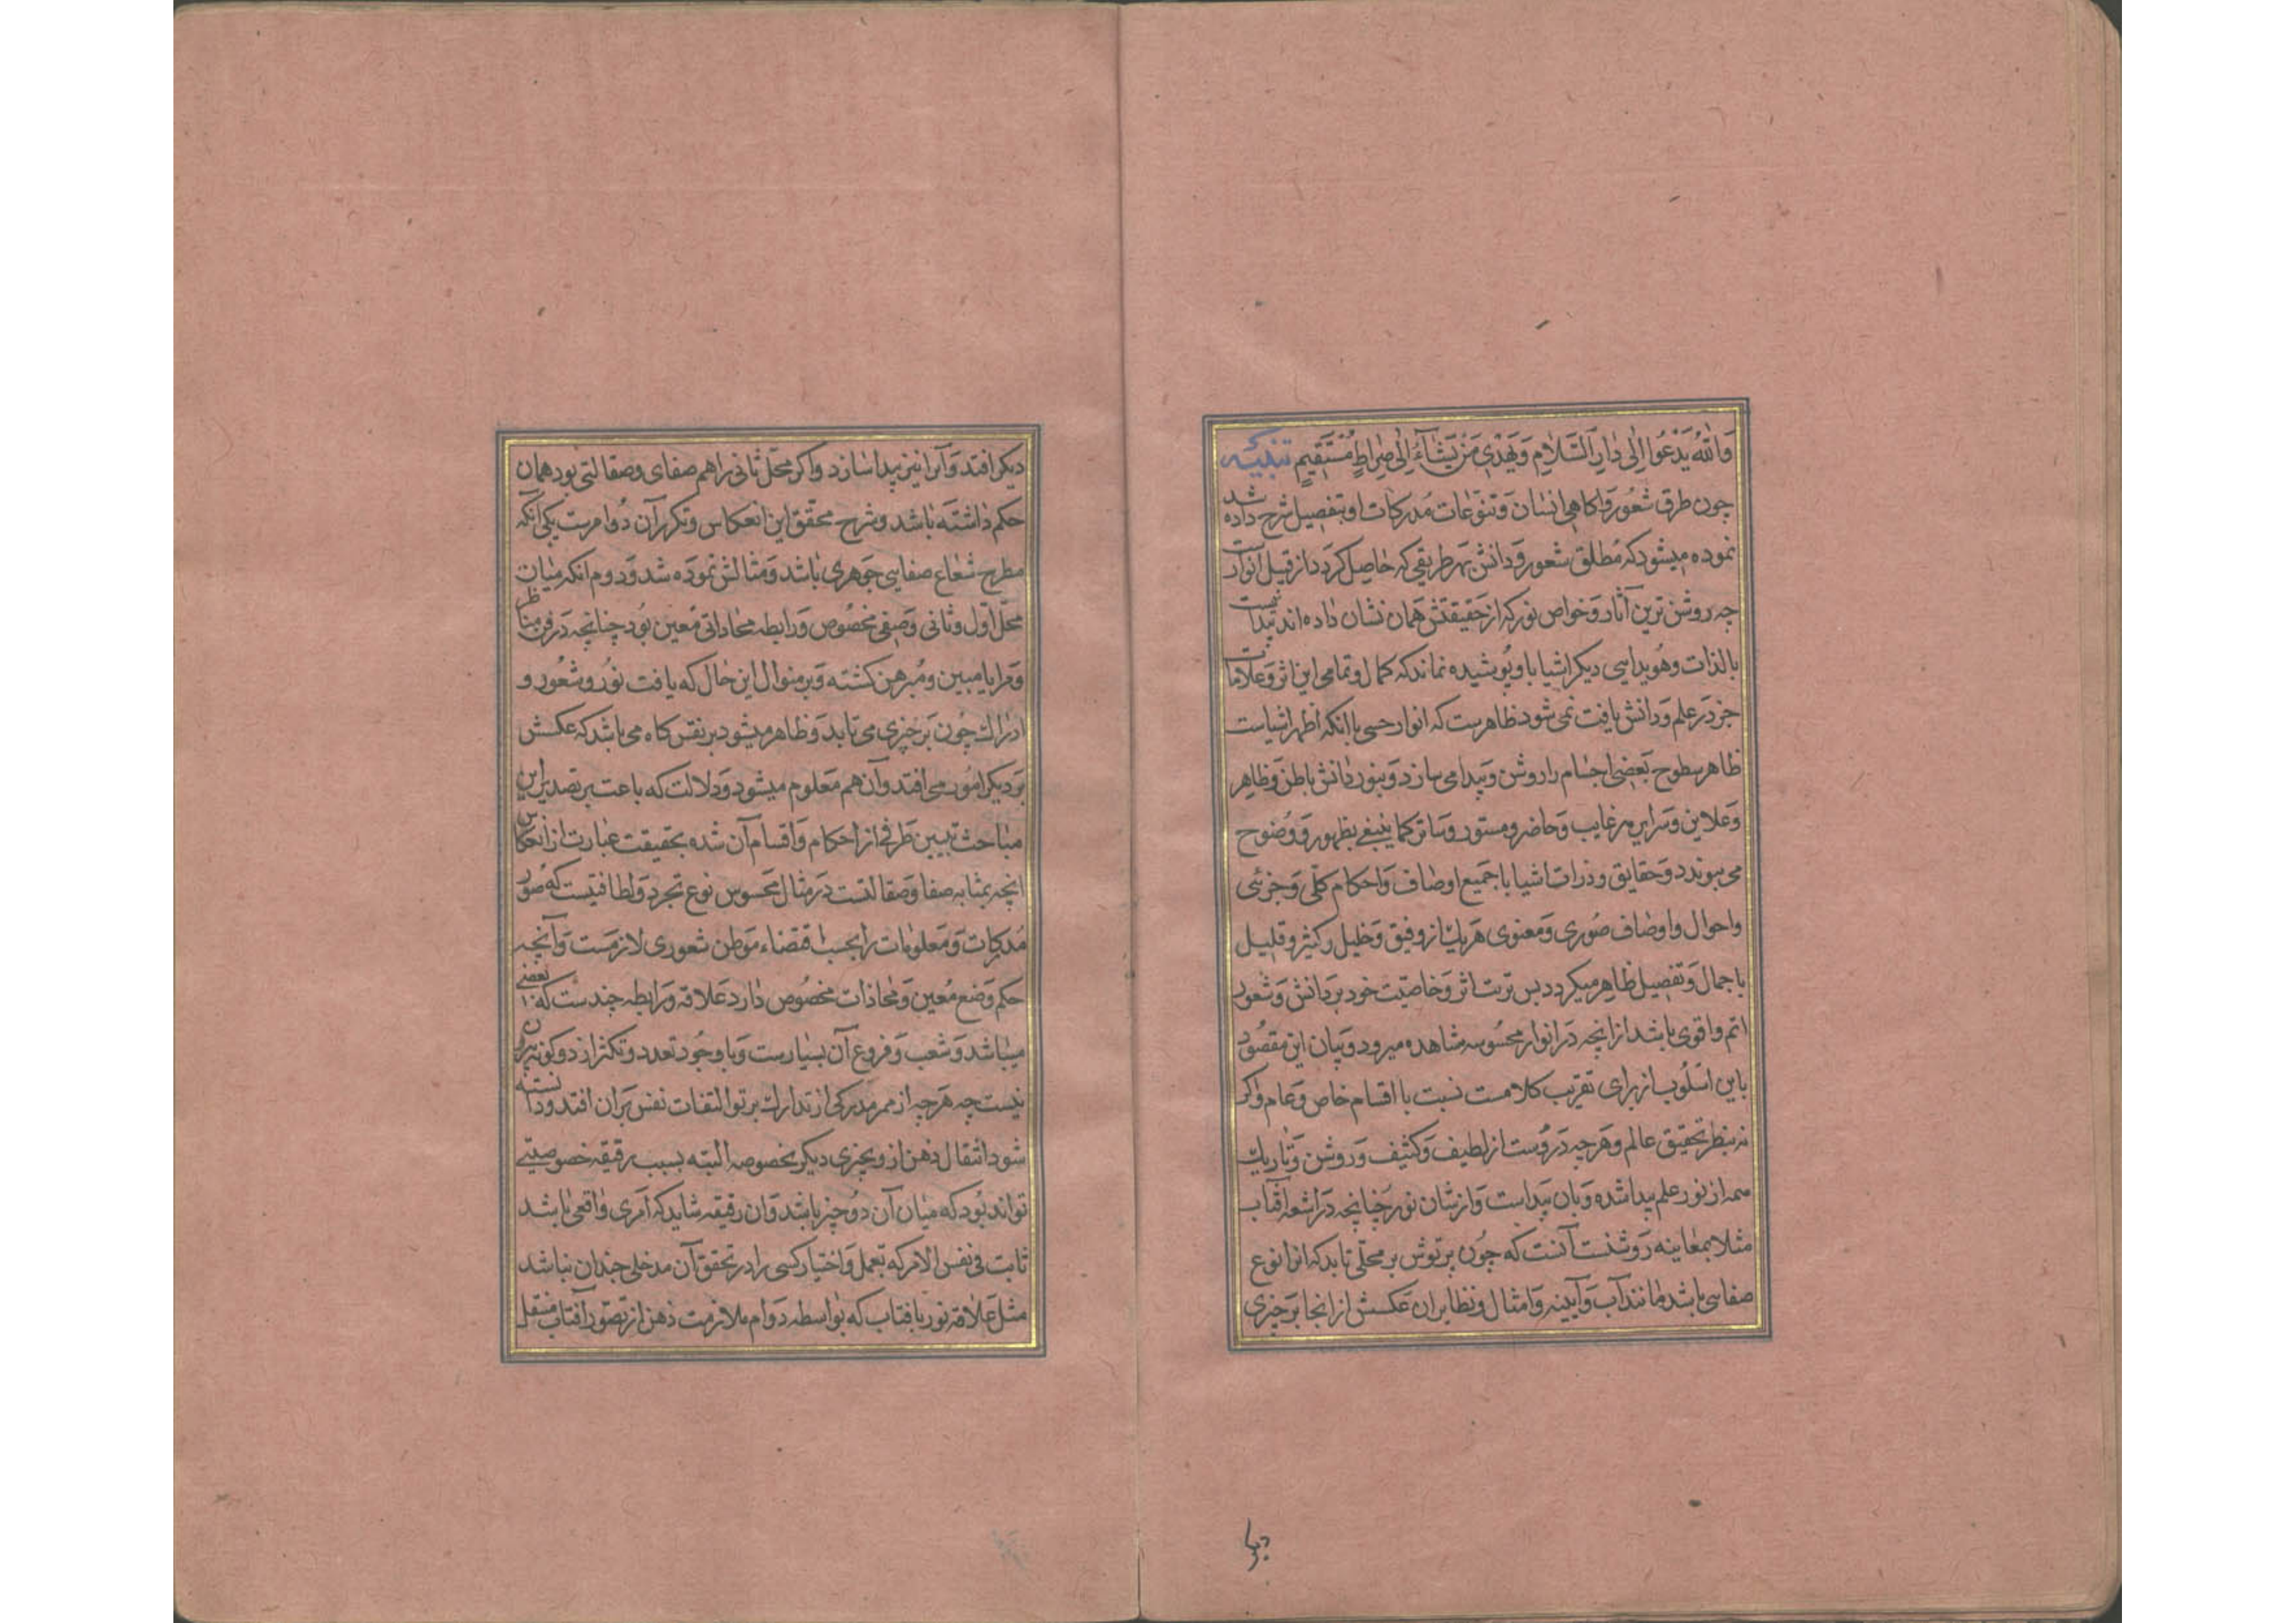 وَاللّٰهُ يَدْعُوا اِلٰى دَارِ السَّلَامِ وَيَهْدِى مَنْ يَشَآءُ اِلٰى صِرَاطٍ مُسْتَقِيمٍ تنبيه
چون طرق شعور و اكاهى انسان و تنوعات مدركات او بتفصيل شرح داده شد
نموده ميشود كه مطلق شعور و دانش بهر طريقى كه حاصل كردد از قبيل انوارست
چه روشن ترين آثار و خواص نور كه از حقيقتش همان نشان داده اند پيدا ئيست
بالذات و هويدايى ديكر اشيا باو و پوشيده نماند كه كمال و تمامى اين اثر و علامات
جز در علم و دانش يافت نمى شود ظاهرست كه انوار حسى با انكه اظهر اشياست
ظاهر سطوح بعضى اجسام را روشن و پيدا مى سازد و بنور دانش باطن و ظاهر
و علاين و سراير غايب و حاضر و مستور و ساتر كما ينبغى بظهور و وضوح
مى پيوندد و حقايق و ذرات اشيا با جميع اوصاف و احكام كلى و جزئى
و احوال و اوصاف صورى و معنوى هريك از و جليل و كثير و قليل
باجمال و تفصيل ظاهر ميكردد پس ترتب اثر و خاصيت خود بر دانش و شعور
اتم و اقوى باشد از انچه در انوار محسوسه مشاهده ميرود و بيان اين مقصود
باين اسلوب از براى تقريب كلامست نسبت با اقسام خاص و عام و اكر
نه بنظر تحقيق عالم و هرچه دروست از لطيف و كثيف و روشن و تاريك
همه از نور علم پيدا شده و بان پيداست و از شان نور چنانچه در اشعه آفتاب
مثلا بمعاينه روشنست آنست كه چون پرتوش بر محلى تابد كه انرا نوع
صفايى باشد مانند آب و آيينه و امثال و نظاير ان عكسش از انجا بر چيزى
ديكر
ديكر افتد و آنرا نيز پيدا سازد و اكر محل ثانى را هم صفاى و صقالتى بود همان
حكم داشته باشد و شرح محقق اين انعكاس و تكرر آن دو امرست يكى آنكه
مطرح شعاع صفايى جوهرى باشد و مثالش نموده شد و دوم انكه ميان
محل اول و ثانى وضعى مخصوص و رابطه محاذاتى معين بود چنانچه در فن مناظر
و مرايا مبين و مبرهن كشته و بر منوال اين حال كه يافت نور و شعور و
ادراك چون بر چيزى مى تابد و ظاهر ميشود بر نفس كاه مى باشد كه عكسش
بر ديكر امور مى افتد و آن هم معلوم ميشود و دلالت كه باعث بر تصدير اين
مباحث تبيين طرفى از احكام و اقسام آن شده بحقيقت عبارت از انعكاس
انچه بمثابه صفا و صقالتست در مثال محسوس نوع تجرد و لطافتيست كه صور
مدركات و معلومات را بحسب اقتضاء موطن شعورى لازمست و آنچه
حكم وضع معين و محاذات مخصوص دارد علاقه و رابطه چندست كه بعضى
ميباشد و شعب و فروع آن بسيارست و با وجود تعدد و تكثر از دو كونه بيرون
نيست چه هرچه از ممر مدركى از تدارك پرتو التفات نفس بران افتد و دانسته
شود انتقال ذهن ازو بچيزى ديكر بخصوصه البته بسبب رقيقه خصوصيتى
تواند بود كه ميان آن دو چيز باشد و ان رقيقه شايد كه امرى واقعى باشد
ثابت فى نفس الامر كه بعمل و اختيار كسى را در تحقق آن مدخلى چندان نباشد
مثل علاقه نور بافتاب كه بواسطه دوام ملازمت ذهن از تصور آفتاب منتقل